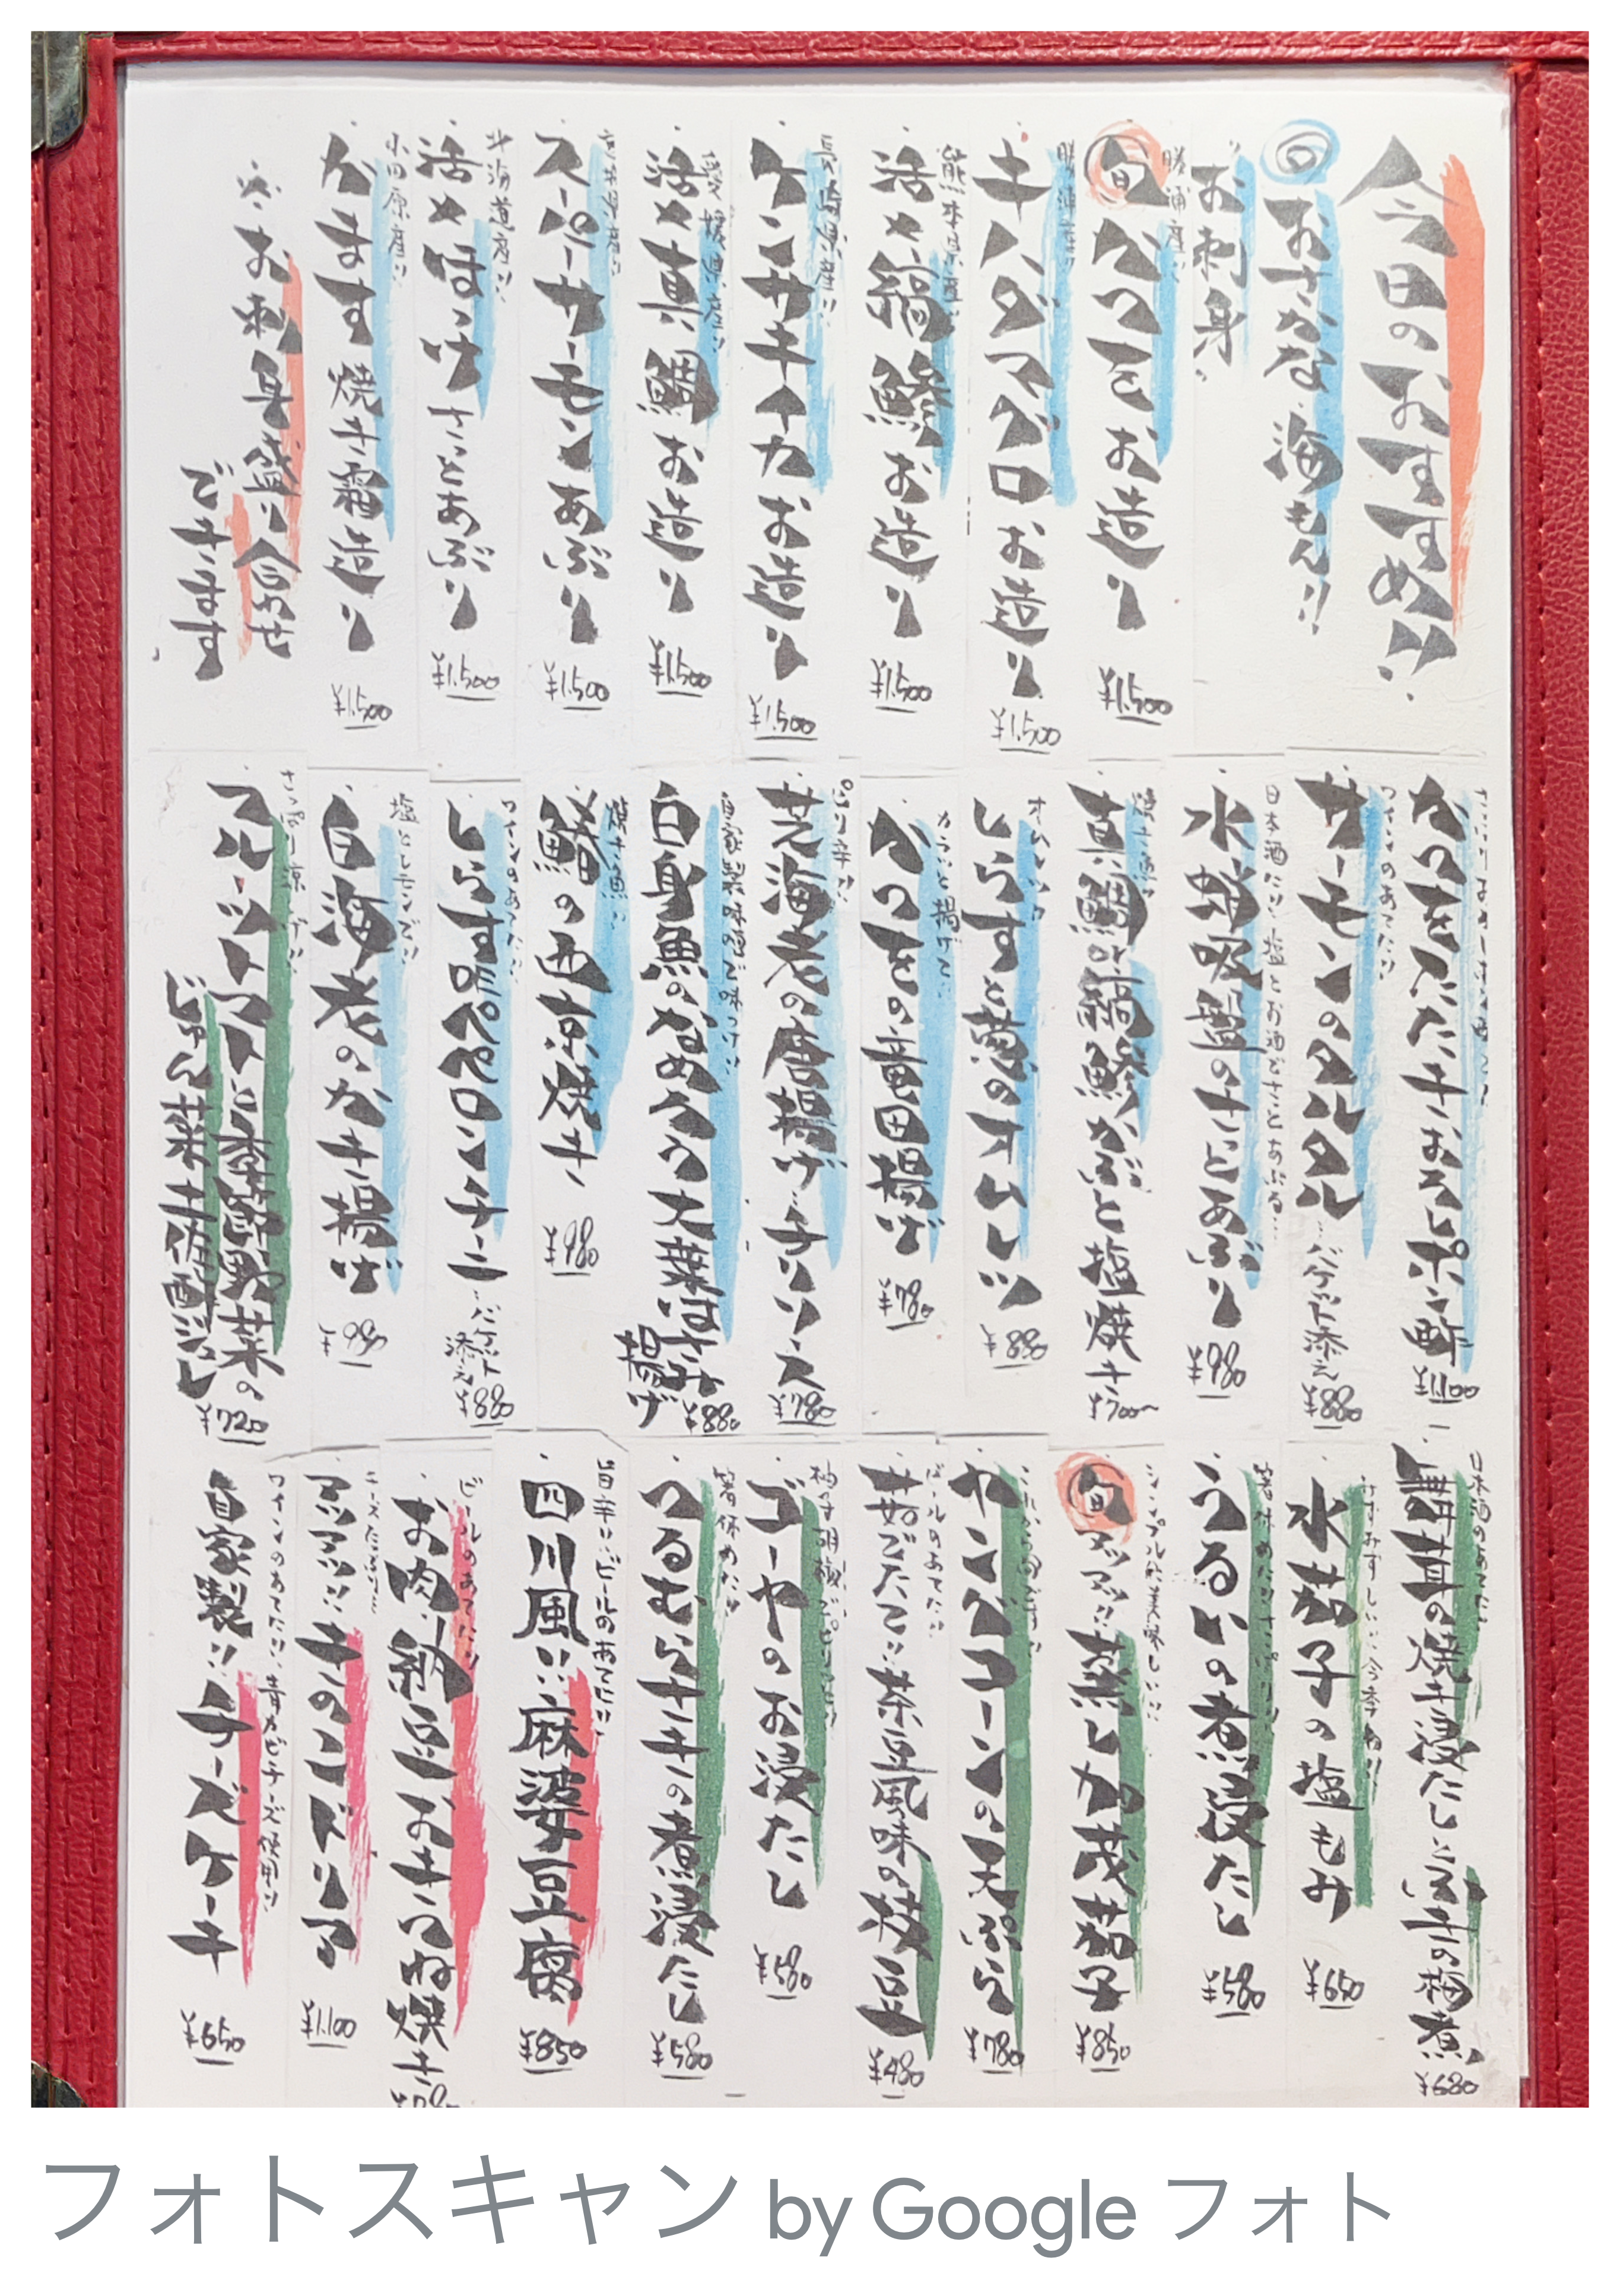 今日のおすすめ!!
旬 おさかな 海もん!!
お刺身
勝浦産!!
旬 かつをお造り
¥1,500
勝浦産!!
キハダマグロお造り
¥1,500
熊本県産!!
活〆縞鯵お造り
¥1,500
長崎県産!!
ケンサキイカお造り
¥1,500
愛媛県産!!
活〆真鯛お造り
¥1,500
スーパーサーモンあぶり
¥1,500
北海道産!!
活〆ほっけ さっとあぶり
¥1,500
小田原産!!
かます焼き霜造り
¥1,500
※お刺身盛り合わせ
できます
かつをのたたき おろしポン酢
¥1,100
ワインのあてに!!
サーモンのタルタル…バケット添え
¥880
日本酒に!!塩とお酒でさっとあぶる…
水蛸吸盤のさっとあぶり
¥980
真鯛or縞鯵かぶと塩焼き
¥700〜
オムレツ
しらすと葱のオムレツ
¥880
カラッと揚げて
かつをの竜田揚げ
¥780
ピリ辛!!
芝海老の唐揚げ…チリソース
¥780
自家製味噌で味つけ!!
白身魚のなめろう大葉はさみ
揚げ
¥880
焼き魚
鰆の西京焼き
¥980
ワインのあてに!!
しらすペペロンチーニ…バケット
添え
¥880
塩とレモンで!!
白海老のかき揚げ
¥980
さっぱり涼しげ!!
フルーツトマトと季節野菜の
じゅん菜土佐酢ジュレ
¥720
日本酒のあてに
舞茸の焼き浸し
¥680
みずみずしい…今季初!!
水茄子の塩もみ
¥650
箸休めに!!さっぱり!!
うるいの煮浸たし
¥580
シンプルが美味しい!!
旬 アツアツ!!蒸し加茂茄子
¥850
これから旬です!!
ヤングコーンの天ぷら
¥780
ビールのあてに!!
茹でたて!!茶豆風味の枝豆
¥480
柚子胡椒でピリっと!!
ゴーヤのお浸たし
¥580
箸休めに!!
つるむらさきの煮浸たし
¥580
旨辛!!ビールのあてに!!
四川風!!麻婆豆腐
¥850
ビールのあてに!!
お肉、納豆おきつね焼き
チーズたっぷり
アツアツ!!きのこドリア
¥1,100
ワインのあてに!!青カビチーズ使用!!
自家製!!チーズケーキ
¥650
フォトスキャン by Google フォト